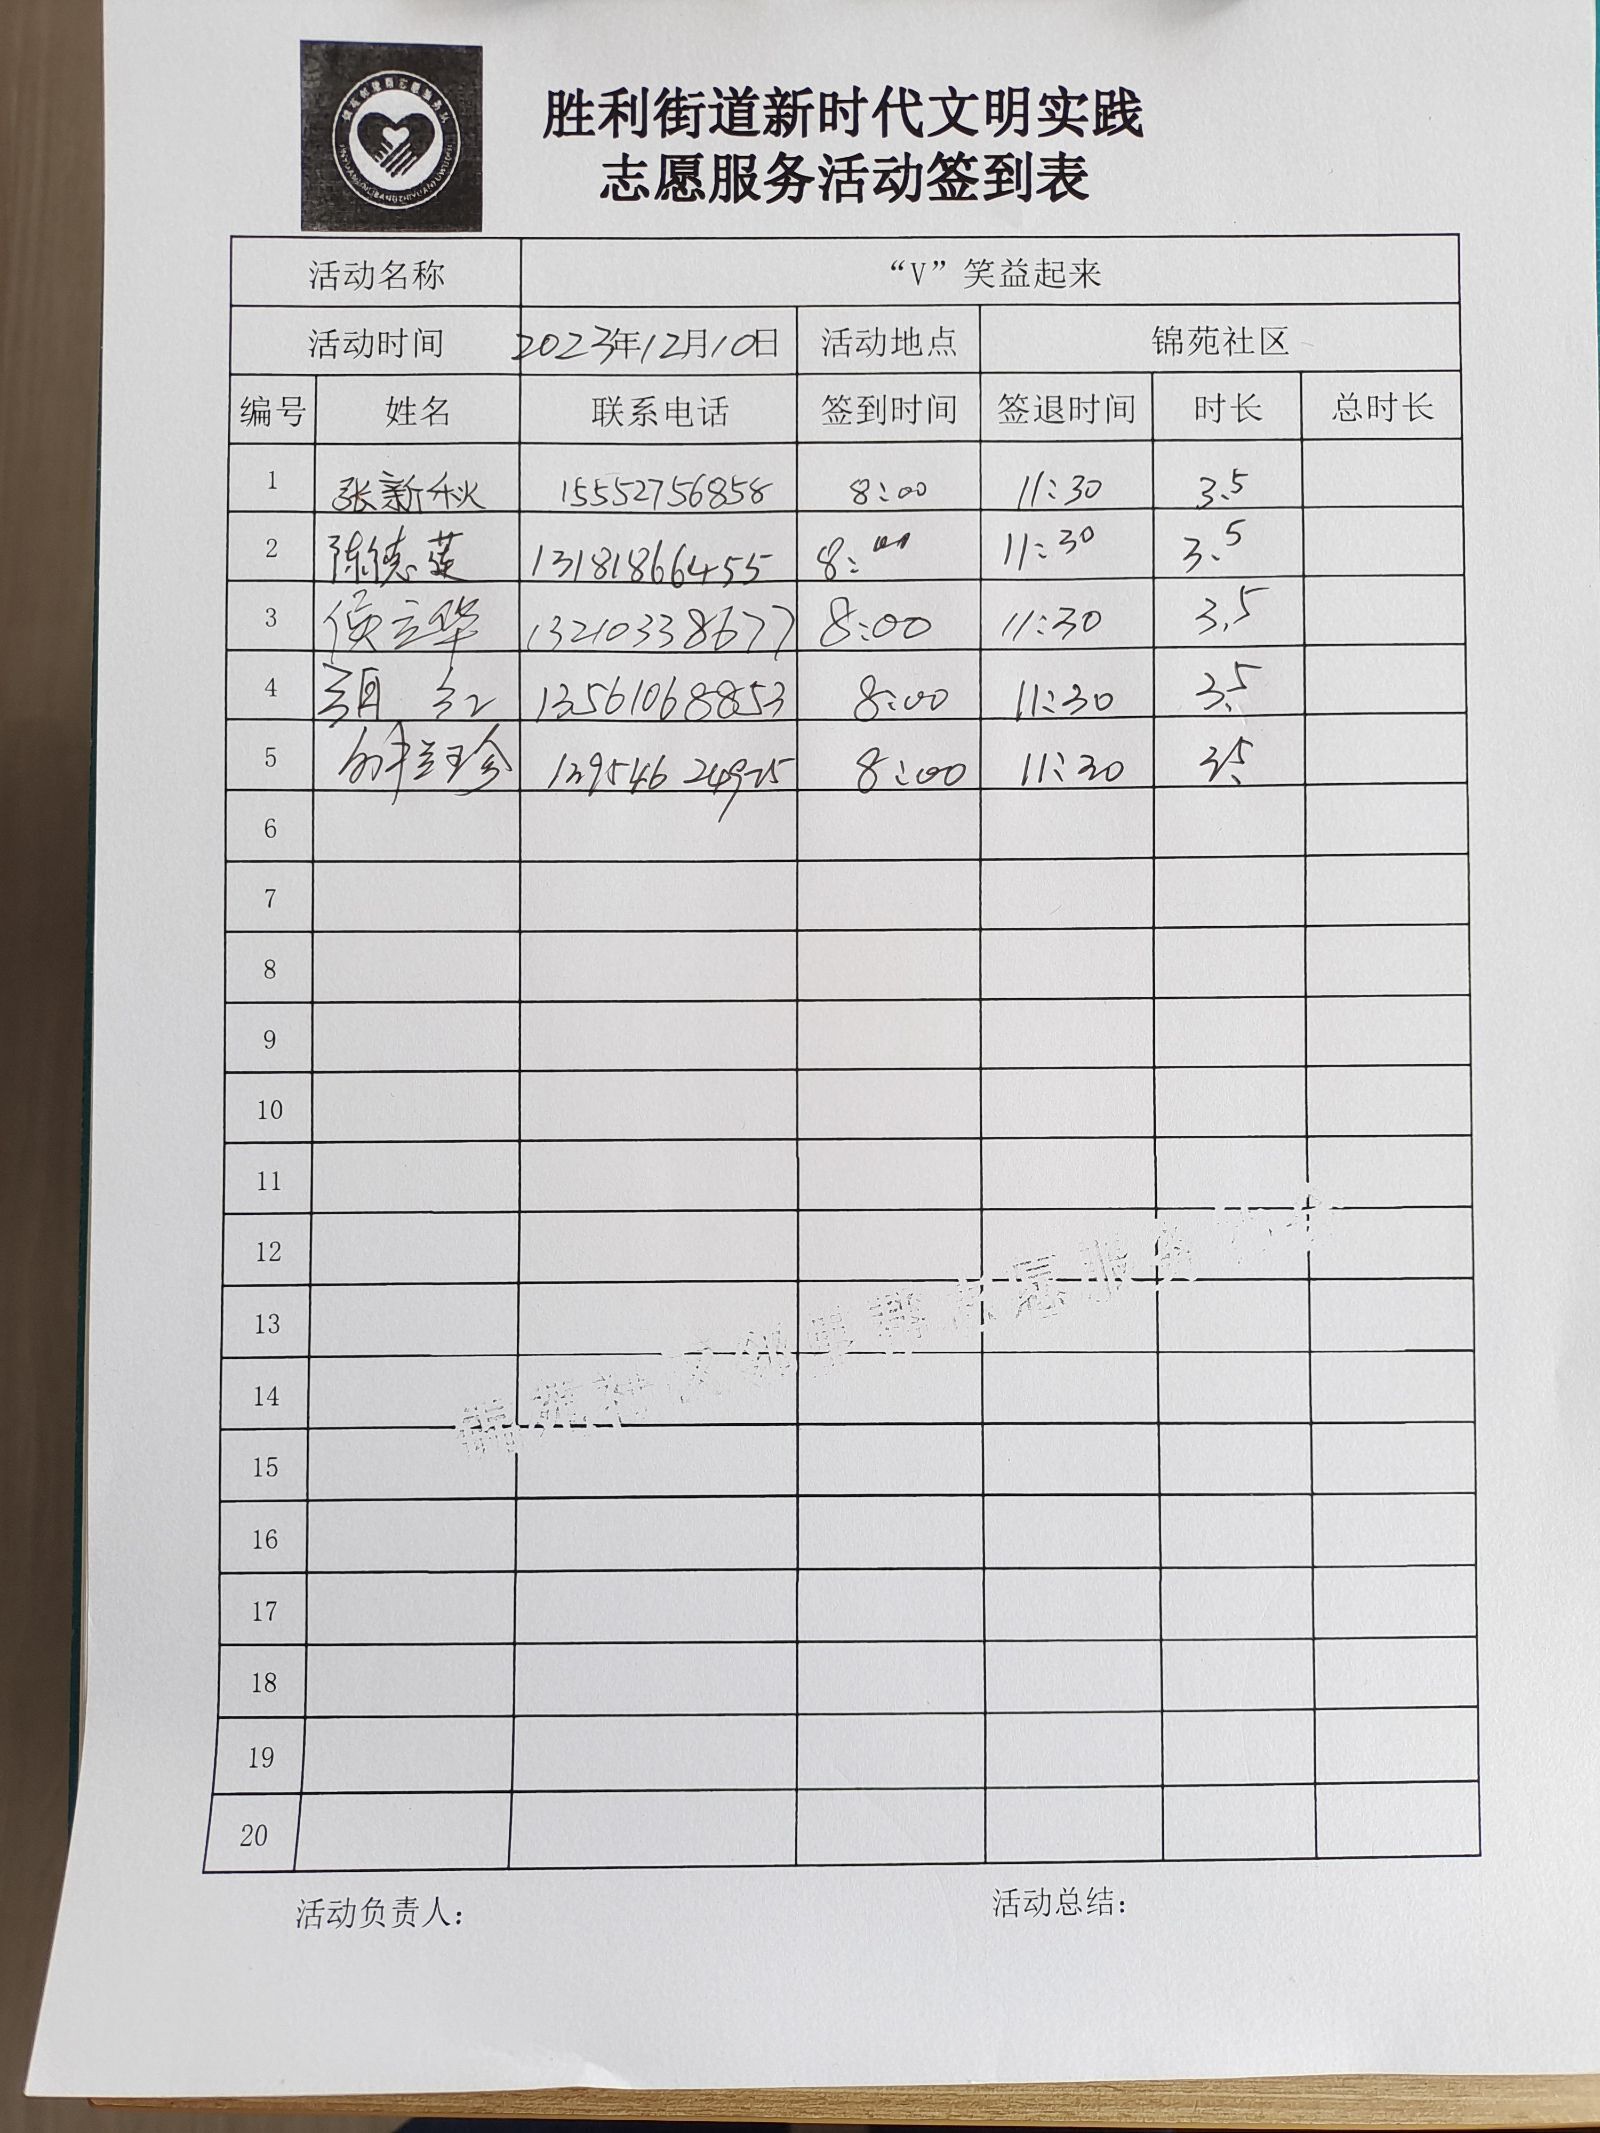 胜利街道新时代文明实践
志愿服务活动签到表
活动名称 “V”笑益起来
活动时间 2023年12月10日 活动地点 锦苑社区
编号 姓名 联系电话 签到时间 签退时间 时长 总时长
1 张新秋 15552756858 8:00 11:30 3.5
2 陈德英 13181866455 8:00 11:30 3.5
3 侯立华 13210338677 8:00 11:30 3.5
4 红 13561068853 8:00 11:30 3.5
5 8:00 11:30 3.5
6
7
8
9
10
11
12
13
14
15
16
17
18
19
20
锦苑社区创建群志愿服务
活动负责人： 活动总结：